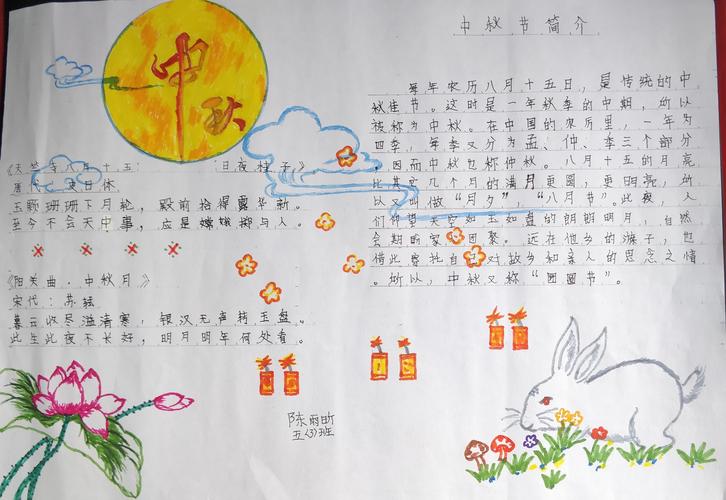 中秋
《天竺寺八月十五日夜桂子》
唐代：皮日休
玉颗珊珊下月轮，殿前拾得露华新。
至今不会天中事，应是嫦娥掷与人。
《阳关曲·中秋月》
宋代：苏轼
暮云收尽溢清寒，银汉无声转玉盘。
此生此夜不长好，明月明年何处看。
陈雨昕
五(3)班
中秋节简介
每年农历八月十五日，是传统的中
秋佳节。这时是一年秋季的中期，所以
被称为中秋。在中国的农历里，一年为
四季，每季又分为孟、仲、季三个部分
，因而中秋也称仲秋。八月十五的月亮
比其它几个月的满月更圆，更明亮，所
以又叫做“月夕”，“八月节”。此夜，人
们仰望天空如玉如盘的朗朗明月，自然
会期盼家人团聚。远在他乡的游子，也
借此寄托自己对故乡和亲人的思念之情
。所以，中秋又称“团圆节”。